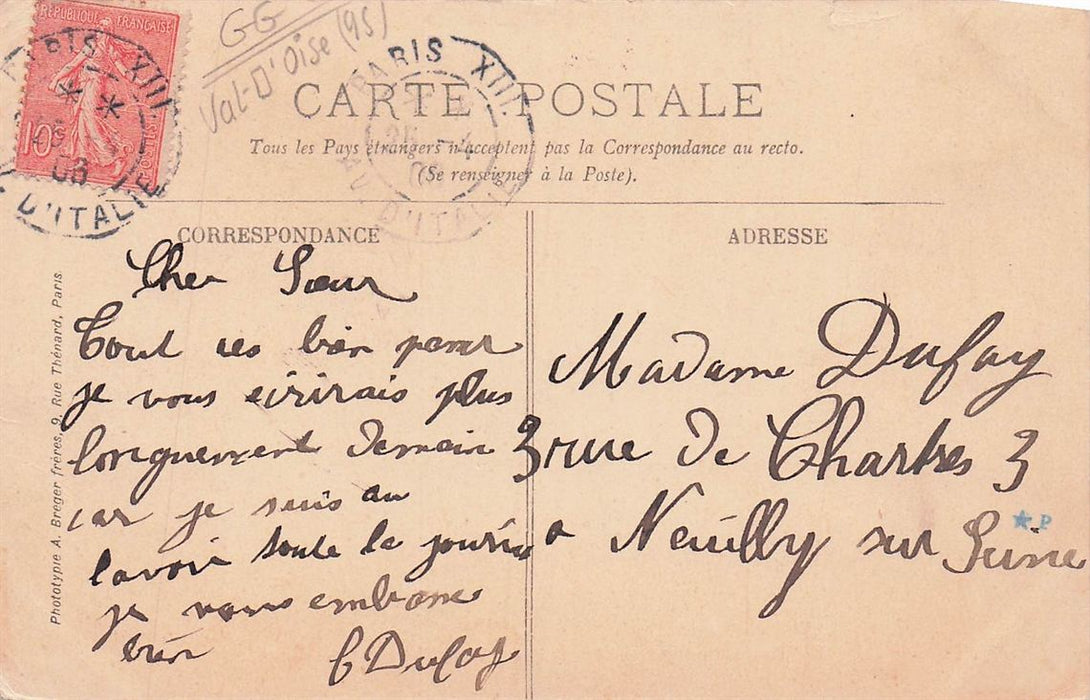 RÉPUBLIQUE FRANÇAISE
10c
POSTES
PARIS XIII
08
AV. D'ITALIE
GG
Val-D'Oise (95)
PARIS XIII
25 -4
08
AV. D'ITALIE
CARTE POSTALE
Tous les Pays étrangers n'acceptent pas la Correspondance au recto.
(Se renseigner à la Poste).
CORRESPONDANCE
Cher Sœur
Tout ces bien passé
je vous ecrirais plus
longuement demain
car je suis au
lavoir toute la journée
je vous embrasse
bien
Dufay
ADRESSE
Madame Dufay
3 rue de Chartres 3
a Neuilly sur Seine
★P
Phototypie A. Breger frères, 9, Rue Thénard, Paris